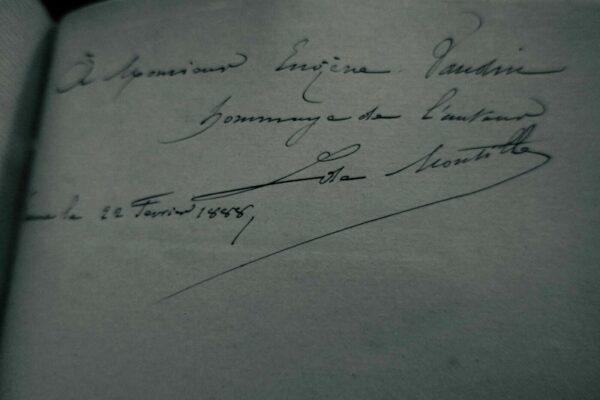 À Monsieur Eugène Vaudin
hommage de l'auteur
L de Montille
le 22 Fevrier 1888,